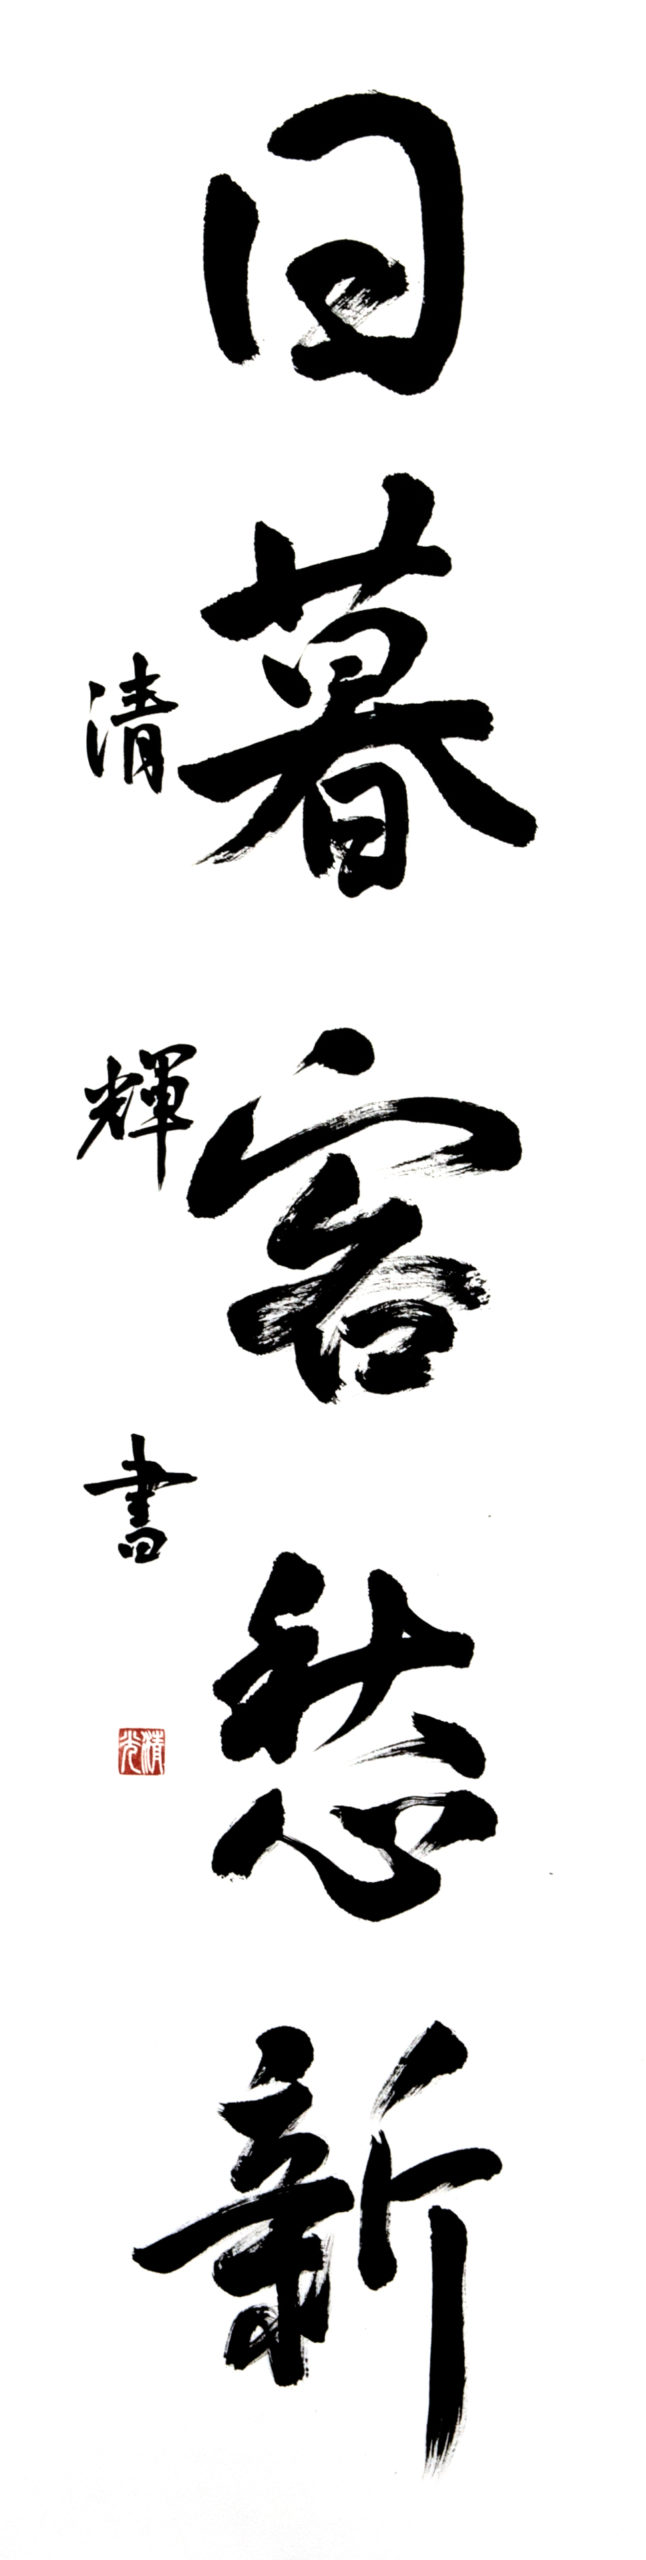 日暮客愁新
清輝書
清光